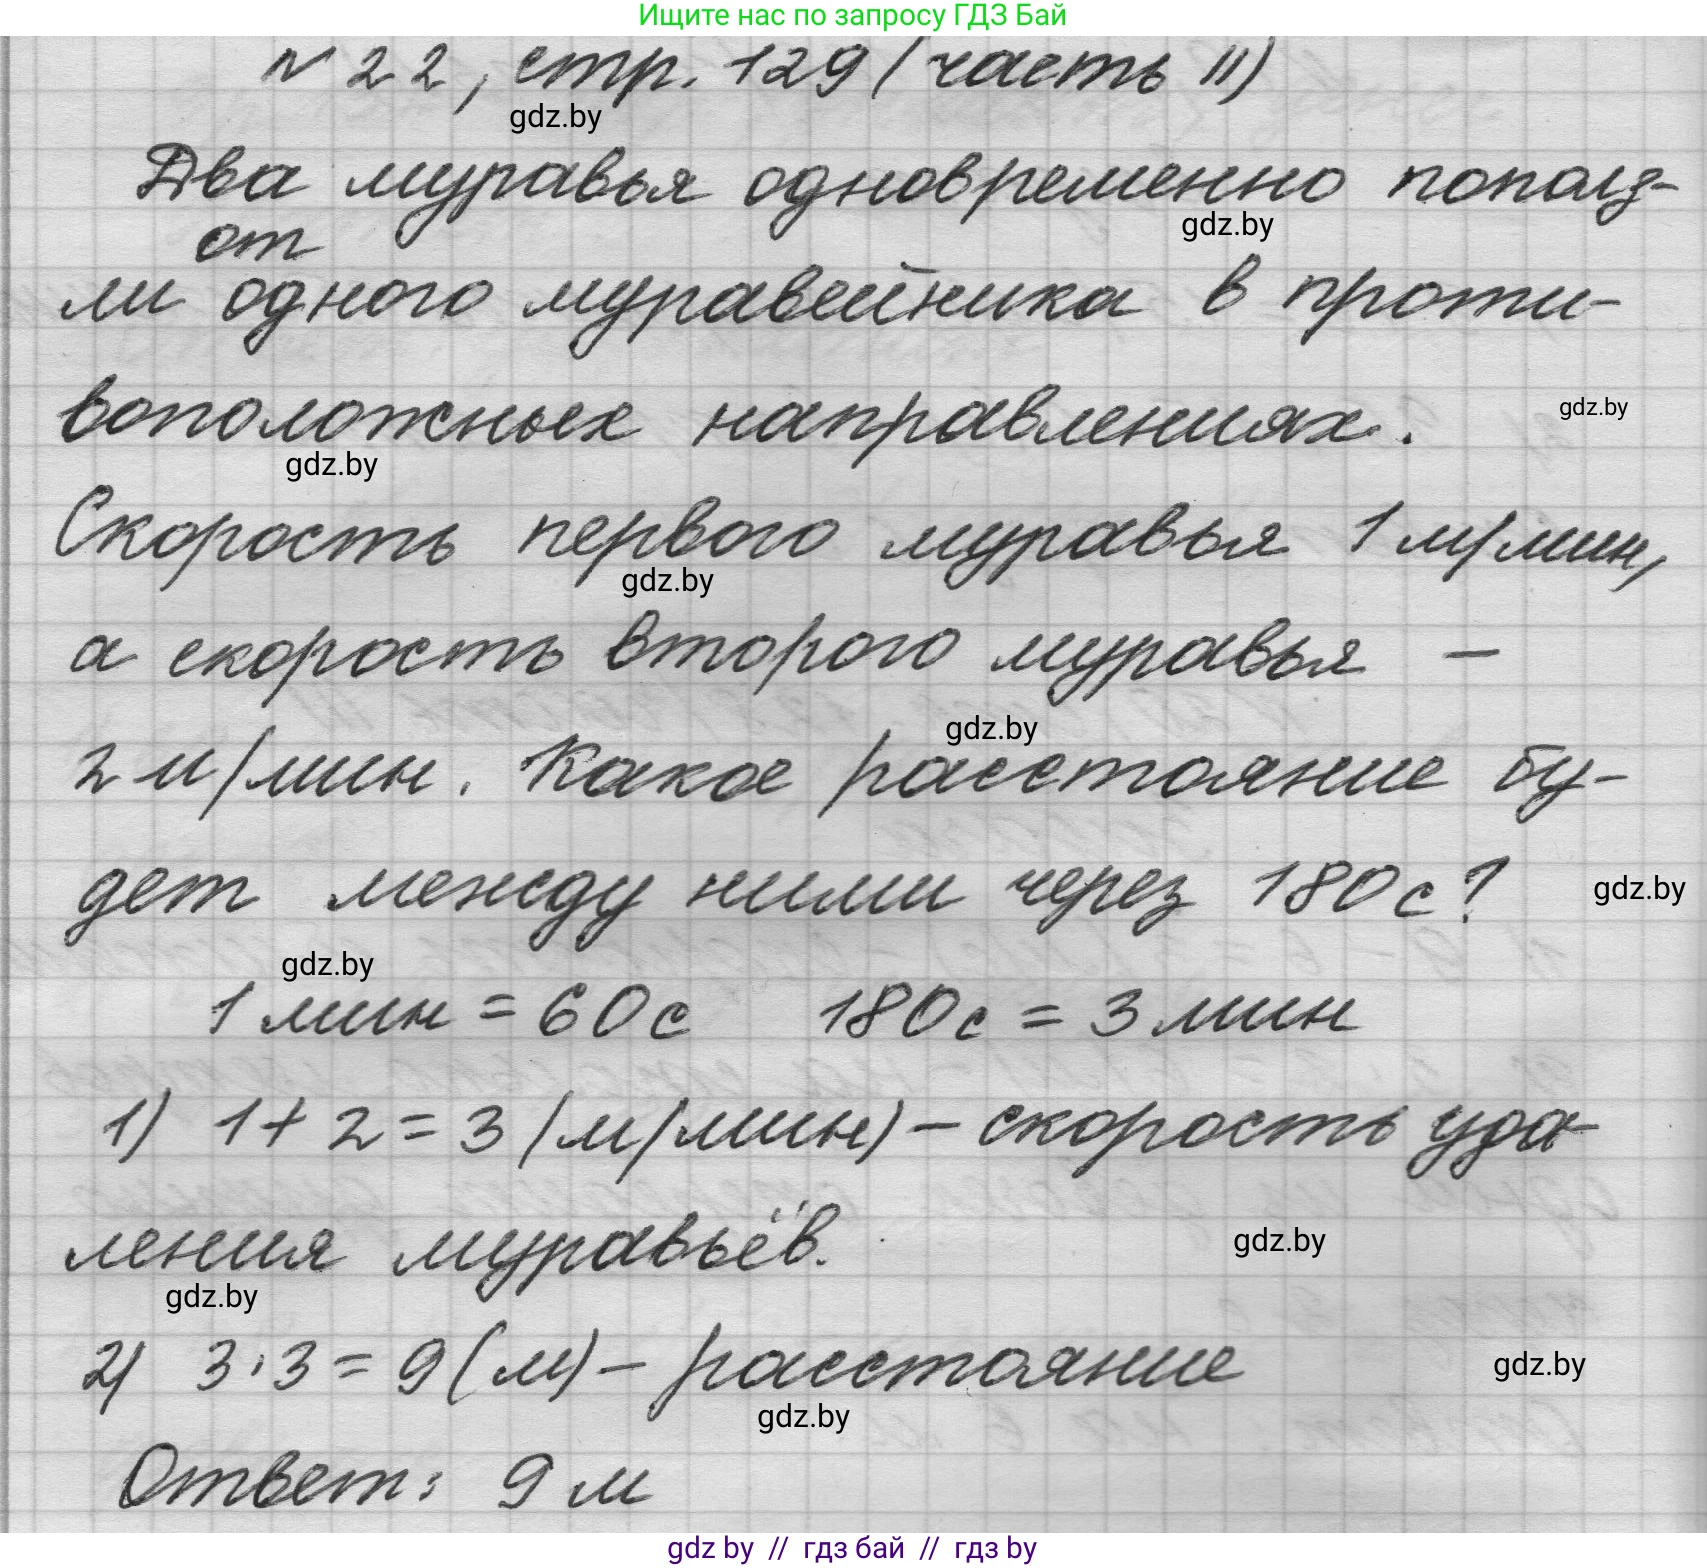 Ищите нас по запросу ГДЗ Бай
№ 22, стр. 129 (часть II)
gdz.by
Два муравья одновременно поползли
gdz.by
от
ли одного муравейника в проти-
воположных направлениях.
gdz.by
gdz.by
Скорость первого муравья 1 м/мин,
gdz.by
а скорость второго муравья –
gdz.by
2 м/мин. Какое расстояние бу-
дет между ними через 180 с?
gdz.by
gdz.by
1 мин = 60 с 180 с = 3 мин
1) 1 + 2 = 3 (м/мин) – скорость уда-
ления муравьёв.
gdz.by
gdz.by
2) 3 · 3 = 9 (м) – расстояние
gdz.by
gdz.by
Ответ: 9 м
gdz by // гдз бай // гдз by